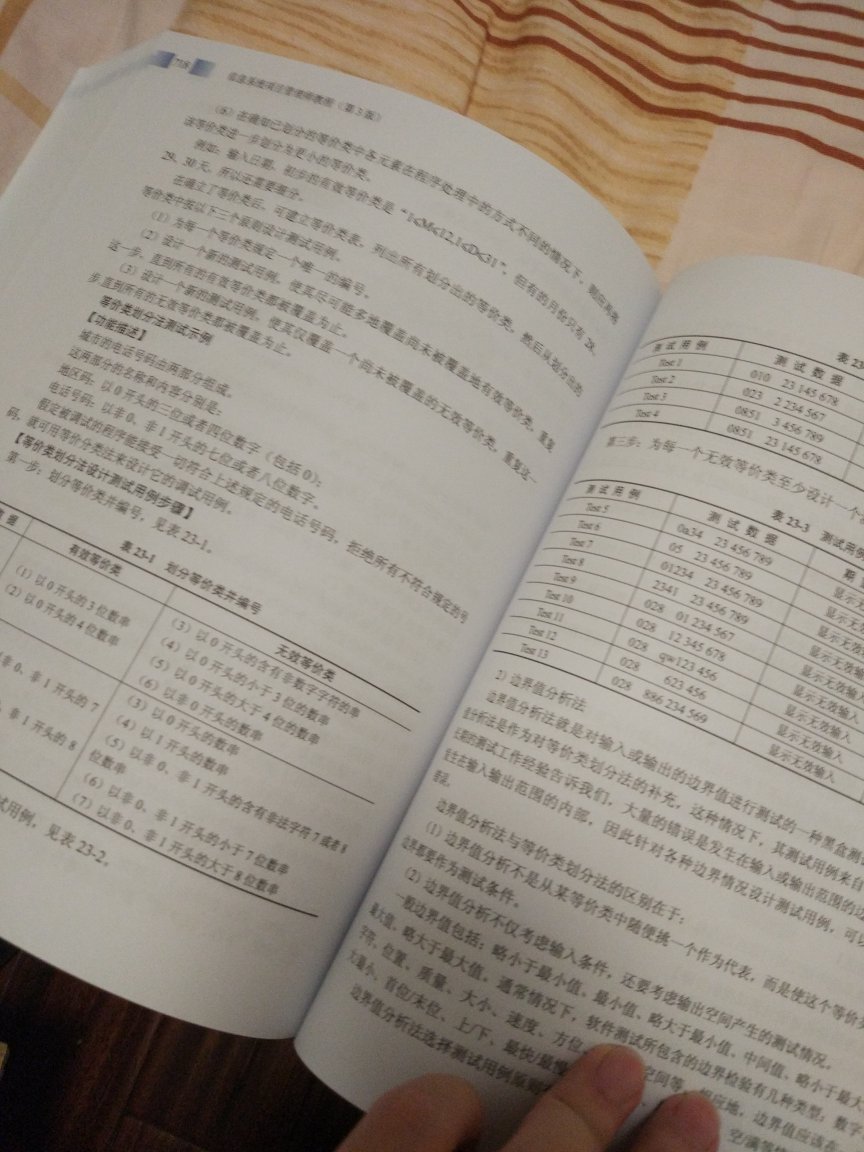 718 信息系统项目管理师教程（第3版）
（6）在确知已划分的等价类中各元素在程序处理中的方式不同的情况下，则应再将
该等价类进一步划分为更小的等价类。
例如：输入日期，初步的有效等价类是“1≤M≤12,1≤D≤31”，但有的月份只有 28、
29、30 天，所以还需要细分。
在确立了等价类后，可建立等价类表，列出所有划分出的等价类，然后从划分出的
等价类中按以下三个原则设计测试用例。
（1）为每一个等价类规定一个唯一的编号。
（2）设计一个新的测试用例，使其尽可能多地覆盖尚未被覆盖地有效等价类，重复
这一步，直到所有的有效等价类都被覆盖为止。
（3）设计一个新的测试用例，使其仅覆盖一个尚未被覆盖的无效等价类，重复这一
步,直到所有的无效等价类都被覆盖为止。
等价类划分法测试示例
【功能描述】
城市的电话号码由两部分组成。
这两部分的名称和内容分别是：
地区码：以 0 开头的三位或者四位数字（包括 0）；
电话号码：以非 0、非 1 开头的七位或者八位数字。
假定被调试的程序能接受一切符合上述规定的电话号码，拒绝所有不符合规定的号
码，就可用等价分类法来设计它的调试用例。
【等价类划分法设计测试用例步骤】
第一步：划分等价类并编号，见表 23-1。
表 23-1 划分等价类并编号
据 有效等价类 无效等价类
（1）以 0 开头的 3 位数串
（2）以 0 开头的 4 位数串
（3）以 0 开头的含有非数字字符的串
（4）以 0 开头的小于 3 位的数串
（5）以 0 开头的大于 4 位的数串
（6）以非 0 开头的数串
非 0、非 1 开头的 7
非 1 开头的 8
（3）以 0 开头的数串
（4）以 1 开头的数串
（5）以非 0、非 1 开头的含有非法字符 7 或者 8
位数串
（6）以非 0、非 1 开头的小于 7 位数串
（7）以非 0、非 1 开头的大于 8 位数串
试用例，见表 23-2。
表 23-
测 试 用 例 测 试 数 据
Test 1 010 23 145 678
Test 2 023 2 234 567
Test 3 0851 3 456 789
Test 4 0851 23 145 678
第三步：为每一个无效等价类至少设计一个
表 23-3 测试用例
测 试 用 例 测 试 数 据 期
Test 5 0a34 23 456 789 显示无
Test 6 05 23 456 789 显示无效
Test 7 01234 23 456 789 显示无效
Test 8 2341 23 456 789 显示无效
Test 9 028 01 234 567 显示无效输
Test 10 028 12 345 678 显示无效输入
Test 11 028 qw123 456 显示无效输入
Test 12 028 623 456 显示无效输入
Test 13 028 886 234 569 显示无效输入
2）边界值分析法
边界值分析法就是对输入或输出的边界值进行测试的一种黑盒测
分析法是作为对等价类划分法的补充，这种情况下，其测试用例来自
的测试工作经验告诉我们，大量的错误是发生在输入或输出范围的边
在输入输出范围的内部，因此针对各种边界情况设计测试用例，可以
边界值分析法与等价类划分法的区别在于：
（1）边界值分析不是从某等价类中随便挑一个作为代表，而是使这个等价
边界都要作为测试条件。
（2）边界值分析不仅考虑输入条件，还要考虑输出空间产生的测试情况。
一般边界值包括：略小于最小值、最小值、略大于最小值、中间值、略小于最大
最大值、略大于最大值，通常情况下，软件测试所包含的边界检验有几种类型：数字
字符、位置、质量、大小、速度、方位 空间等，相应地，边界值应该在
大/最小、首位/末位、上/下、最快/最慢 空/满等
边界值分析法选择测试用例原则